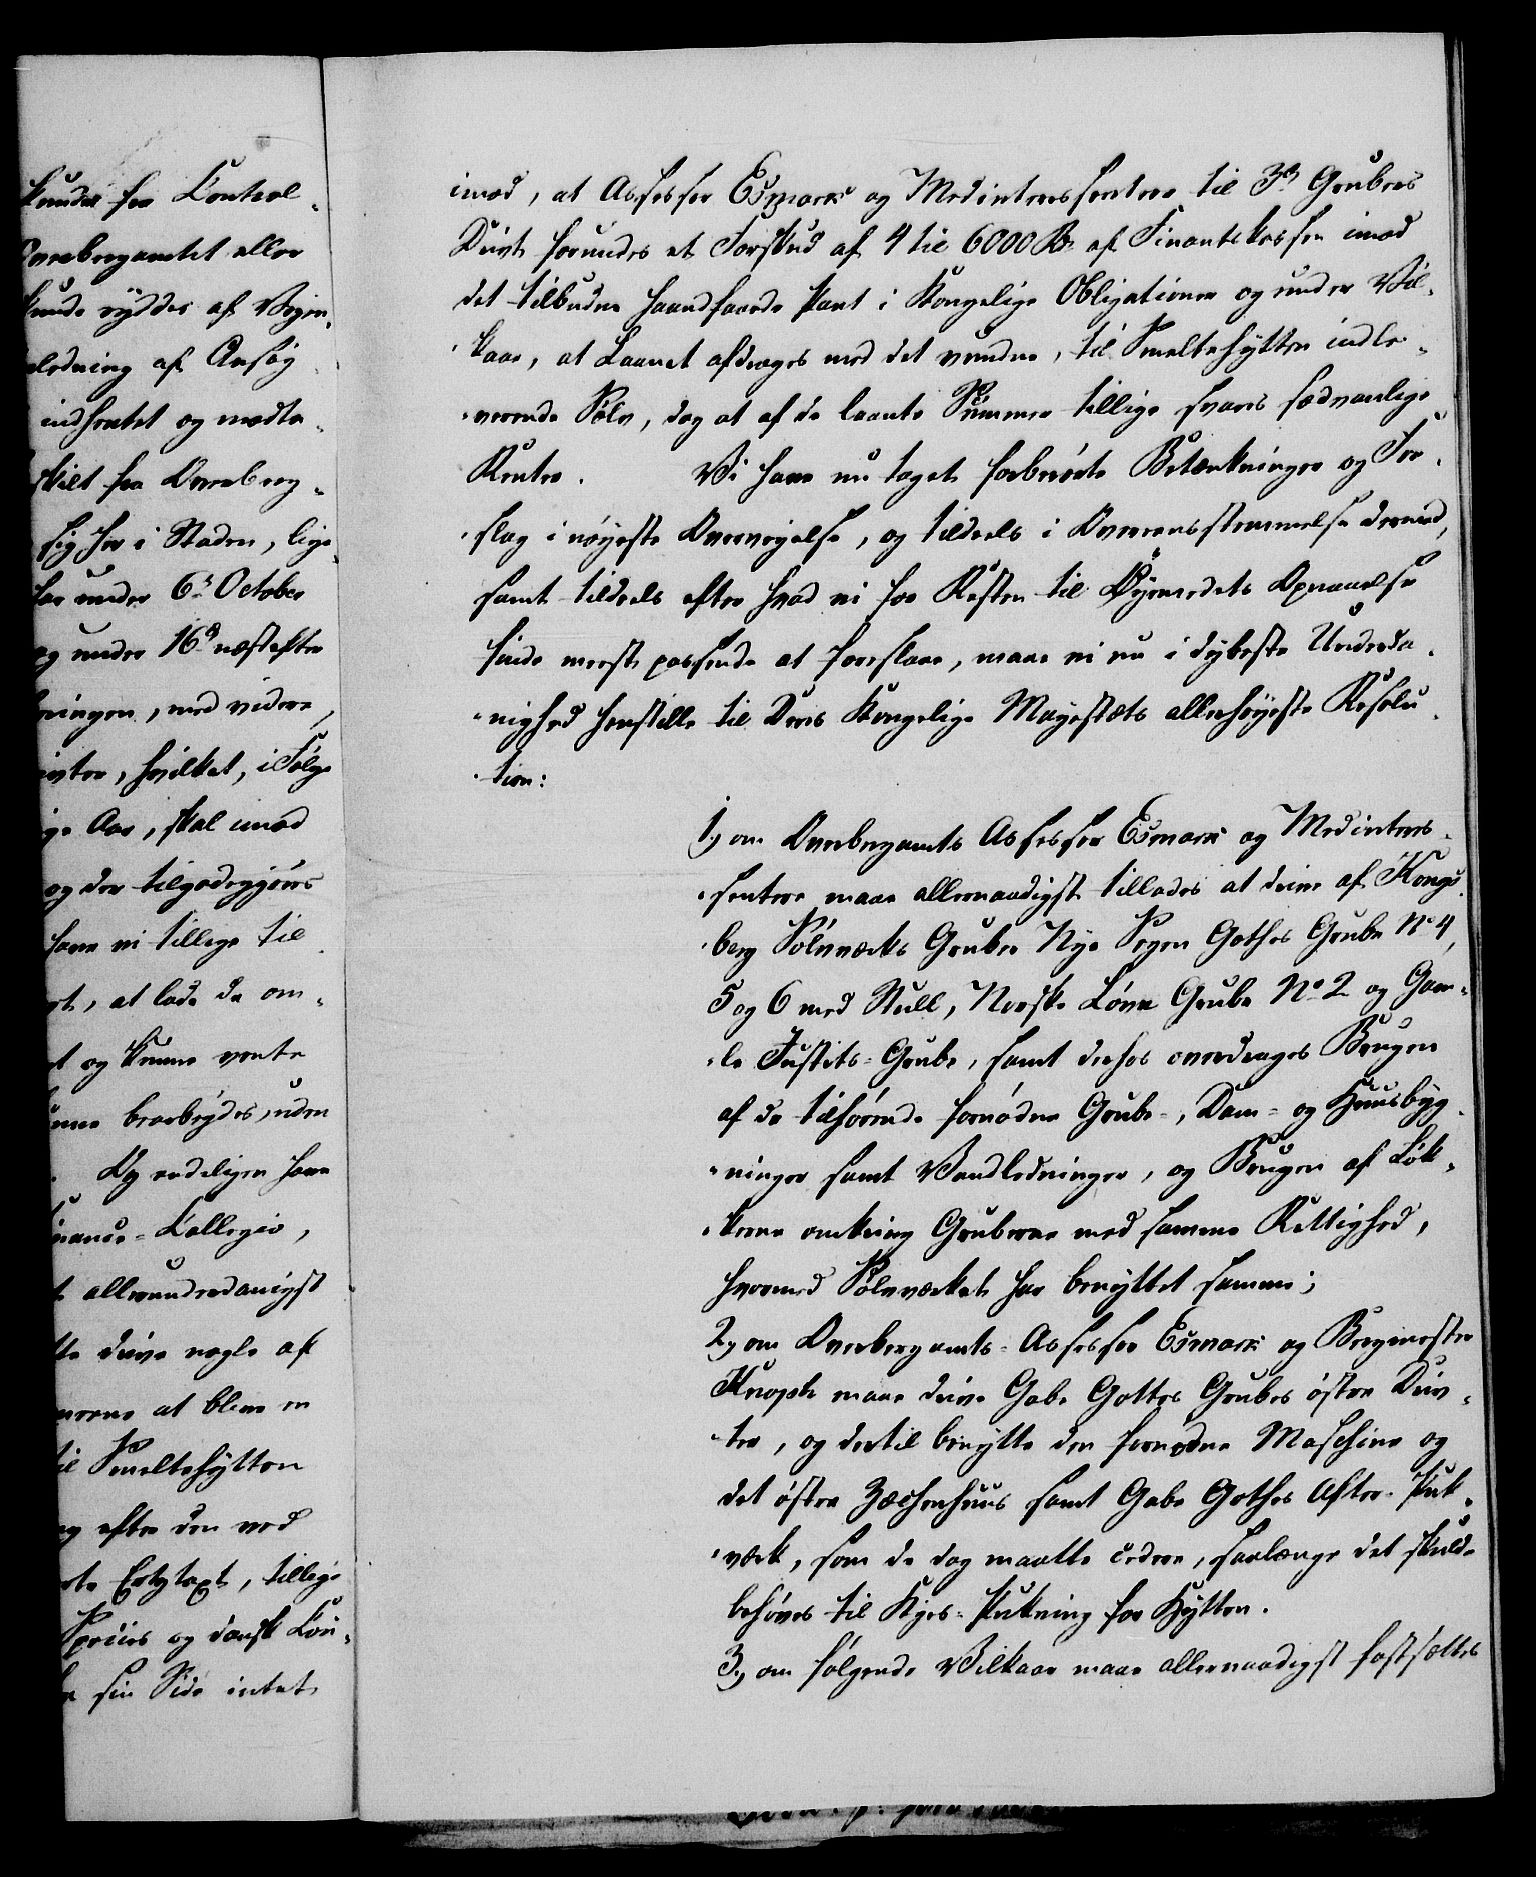 kundes fra Control-
Overbergamtet eller
kunde ryddes af Vejen,
ledning af Ansøg
indhentet og modta-
skilt fra Overberg-
sig her i Staden, lige-
har under 6te October
og under 16de næstefter
ningen, med videre,
hvilket, i Følge
ge Aar, skal imod
og der tilgodegjøres
have vi tillige til
at lade de om-
og kunne vente
bearbejdes, uden
Og endeligen have
Finance-Collegio,
allerunderdanigst
drive nogle af
at blive en
til Smeltehytten
og efter den ved
Ertztaxt, tillige
Species og dansk Cou-
sin Side intet
imod, at Assessor Esmark og Medinteressentere til 3de Grubers
Drivt forundes et Forskud af 4 til 6000 Rd. af Finantskassen imod
det tilbudne haandfaaede Pant i Kongelige Obligationer og under Vil-
kaar, at Laanet afdrages med det vundne, til Smeltehytten indle-
verende Sølv, dog at af de laante Summer tillige svares sædvanlige
Renter. Vi have nu taget forberørte Betænkninger og For-
slag i nøyeste Overvejelse, og tildeels i Overeensstemmelse dermed,
samt tildeels efter hvad vi for Resten til Øyemedets Opnaaelse
finde meest passende at foreslaae, maae vi nu i dybeste Underda-
nighed henstille til Deres Kongelige Mayestæts allerhøyeste Resolu-
tion:
1.) om Overbergamts Assessor Esmark og Medinteres-
sentere maae allernaadigst tillades at drive af Kongs-
berg Sølvværks Gruber Nye Segen Gottes Grube No 4,
5 og 6 med Stull, Norske Løve Grube No 2 og Gam-
le Justits-Grube, samt derhos overdrages Brugen
af de tilhørende fornødne Grube-, Dam- og Huusbyg-
ninger samt Vandledninger, og Brugen af Løk-
kerne omkring Gruberne med samme Rettighed,
hvormed Sølvværket har benyttet samme;
2.) om Overbergamts-Assessor Esmark og Bergmester
Knoph maae drive Gabe Gottes Grubes østre Driv-
ter, og dertil benytte den fornødne Maschine og
det østre Zechenhuus samt Gabe Gottes After-Puk-
værk, som de dog maatte cedere, saalænge det skulde
behøves til Kies-Pukning for Hytten.
3.) om følgende Vilkaar maae allernaadigst fastsættes